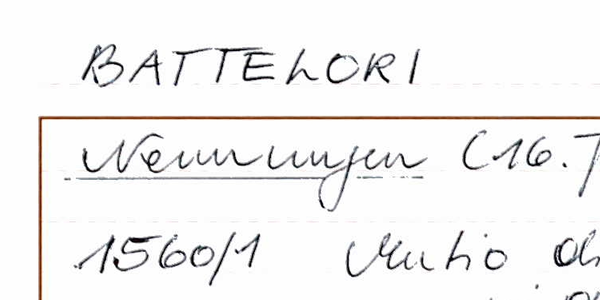 BATTELORI
Nennungen (16.
1560/1 Mutio